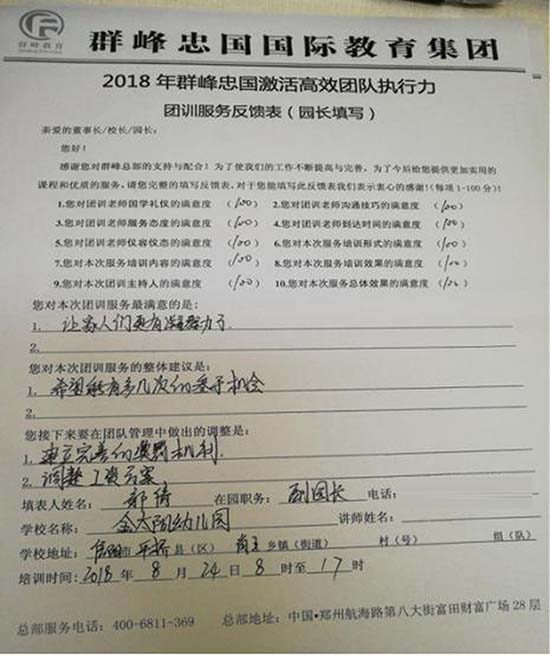 群峰教育
群峰忠国国际教育集团
2018年群峰忠国激活高效团队执行力
团训服务反馈表（园长填写）
亲爱的董事长/校长/园长：
您好！
感谢您对群峰总部的支持与配合！为了使我们的工作不断提高与完善，为了今后给您提供更加实用的
课程和优质的服务，请您完整的填写反馈表，对于您能填写此反馈表我们表示衷心的感谢！（每项1-100分）！
1.您对团训老师国学礼仪的满意度 （100） 2.您对团训老师沟通技巧的满意度 （100）
3.您对团训老师服务态度的满意度 （100） 4.您对团训老师到达时间的满意度 （100）
5.您对团训老师仪容仪态的满意度 （100） 6.您对本次服务培训形式的满意度 （100）
7.您对本次服务培训内容的满意度 （100） 8.您对本次服务培训效果的满意度 （100）
9.您对本次团训主持人的满意度 （100） 10.您对本次服务总体效果的满意度 （100）
您对本次团训服务最满意的是：
1. 让家人们更有凝聚力了.
2.
您对本次团训服务的整体建议是：
1. 希望能有多几次的学习机会
2.
您接下来要在团队管理中做出的调整是：
1. 建立完善的奖罚机制.
2. 调整工资方案
填表人姓名： 郭倩 在园职务： 副园长 电话：
学校名称： 金太阳幼儿园 讲师姓名：
学校地址： 信阳市 平桥 县（区） 乡镇（街道） 村（号） 组（队）
培训时间：2018年 8 月 24 日 8 时至 17 时
总部服务电话：400-6811-369 总部地址：中国·郑州航海路第八大街富田财富广场28层